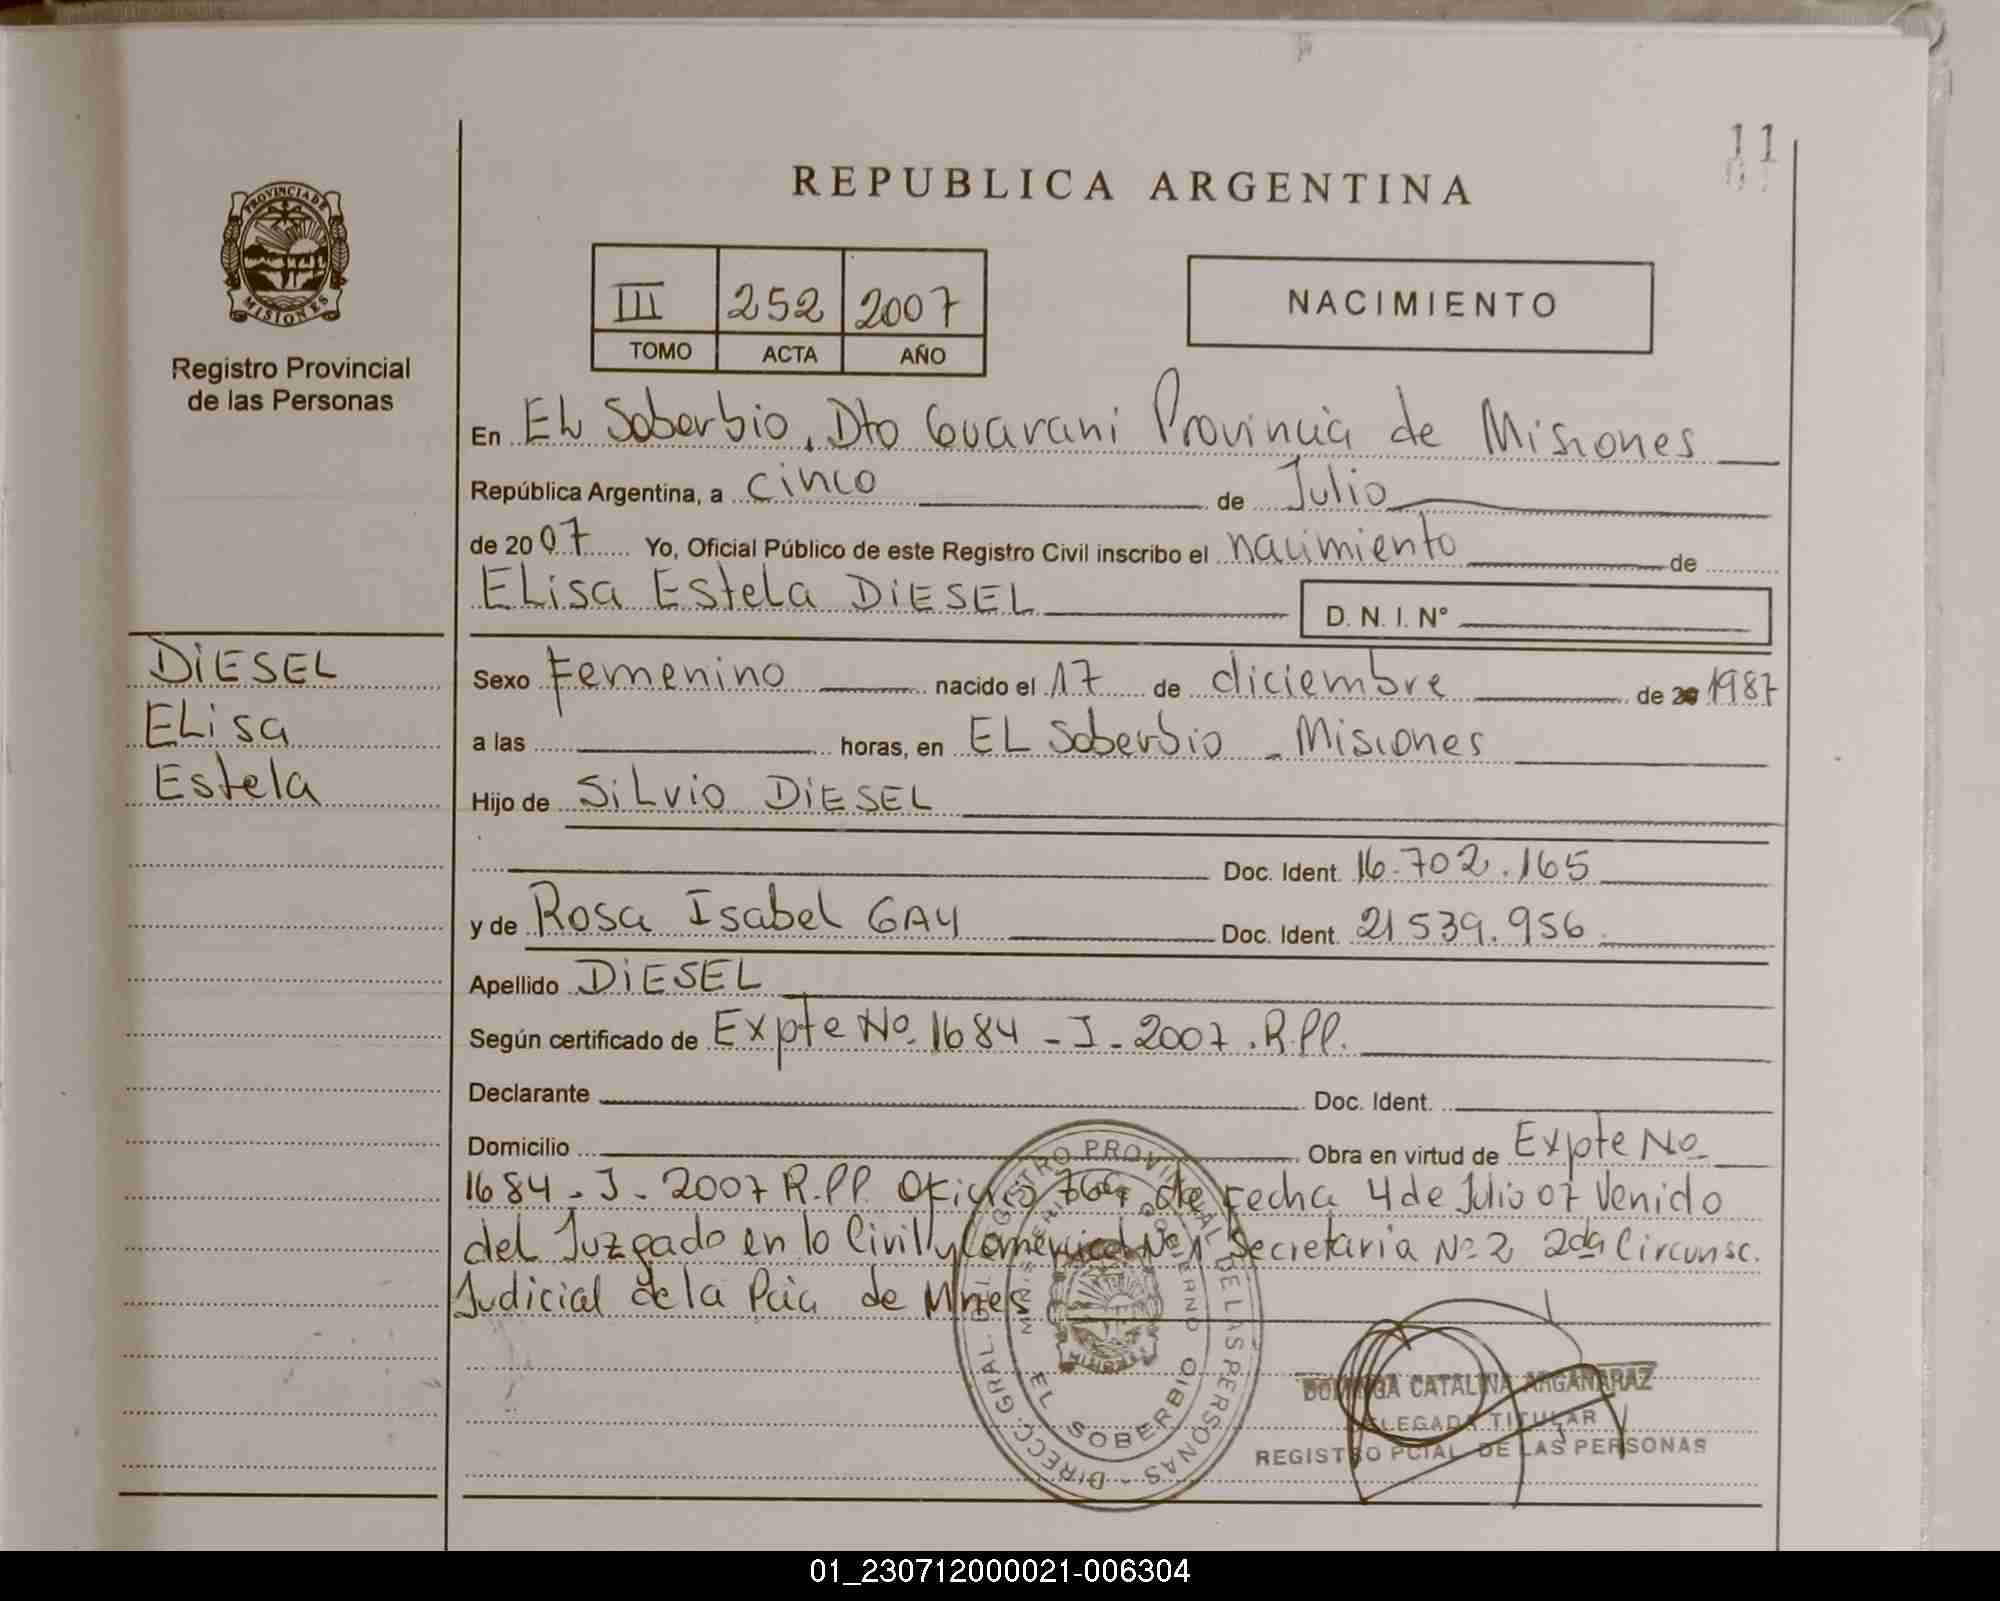 11
REPUBLICA ARGENTINA
PROVINCIA DE
MISIONES
Registro Provincial
de las Personas
III 252 2007
TOMO ACTA AÑO
NACIMIENTO
En EL Soberbio, Dto Guarani Provincia de Misiones
República Argentina, a cinco de Julio
de 2007 Yo, Oficial Público de este Registro Civil inscribo el nacimiento de
ELisa Estela DiESEL D. N. I. N°
DiESEL
ELisa
Estela
Sexo Femenino nacido el 17 de diciembre de 20 1987
a las horas, en EL Soberbio - Misiones
Hijo de SiLvio DiESEL
Doc. Ident. 16.702.165
y de Rosa Isabel GAY Doc. Ident. 21539.956
Apellido DiESEL
Según certificado de Expte No. 1684 - J - 2007 . R.PP.
Declarante Doc. Ident.
Domicilio Obra en virtud de Expte No
1684 - J - 2007 R.PP. Oficio de Fecha 4 de Julio 07 Venido
del Juzgado en lo Civil y Comercial No 1 Secretaria No 2 2da Circunsc.
Judicial de la Pcia de Mnes
DIRECC. GRAL. DEL REGISTRO PROVINCIAL DE LAS PERSONAS -
MINISTERIO DE GOBIERNO
EL SOBERBIO
DOMINGA CATALINA ARGAÑARAZ
DELEGADA TITULAR
REGISTRO PCIAL. DE LAS PERSONAS
01_230712000021-006304